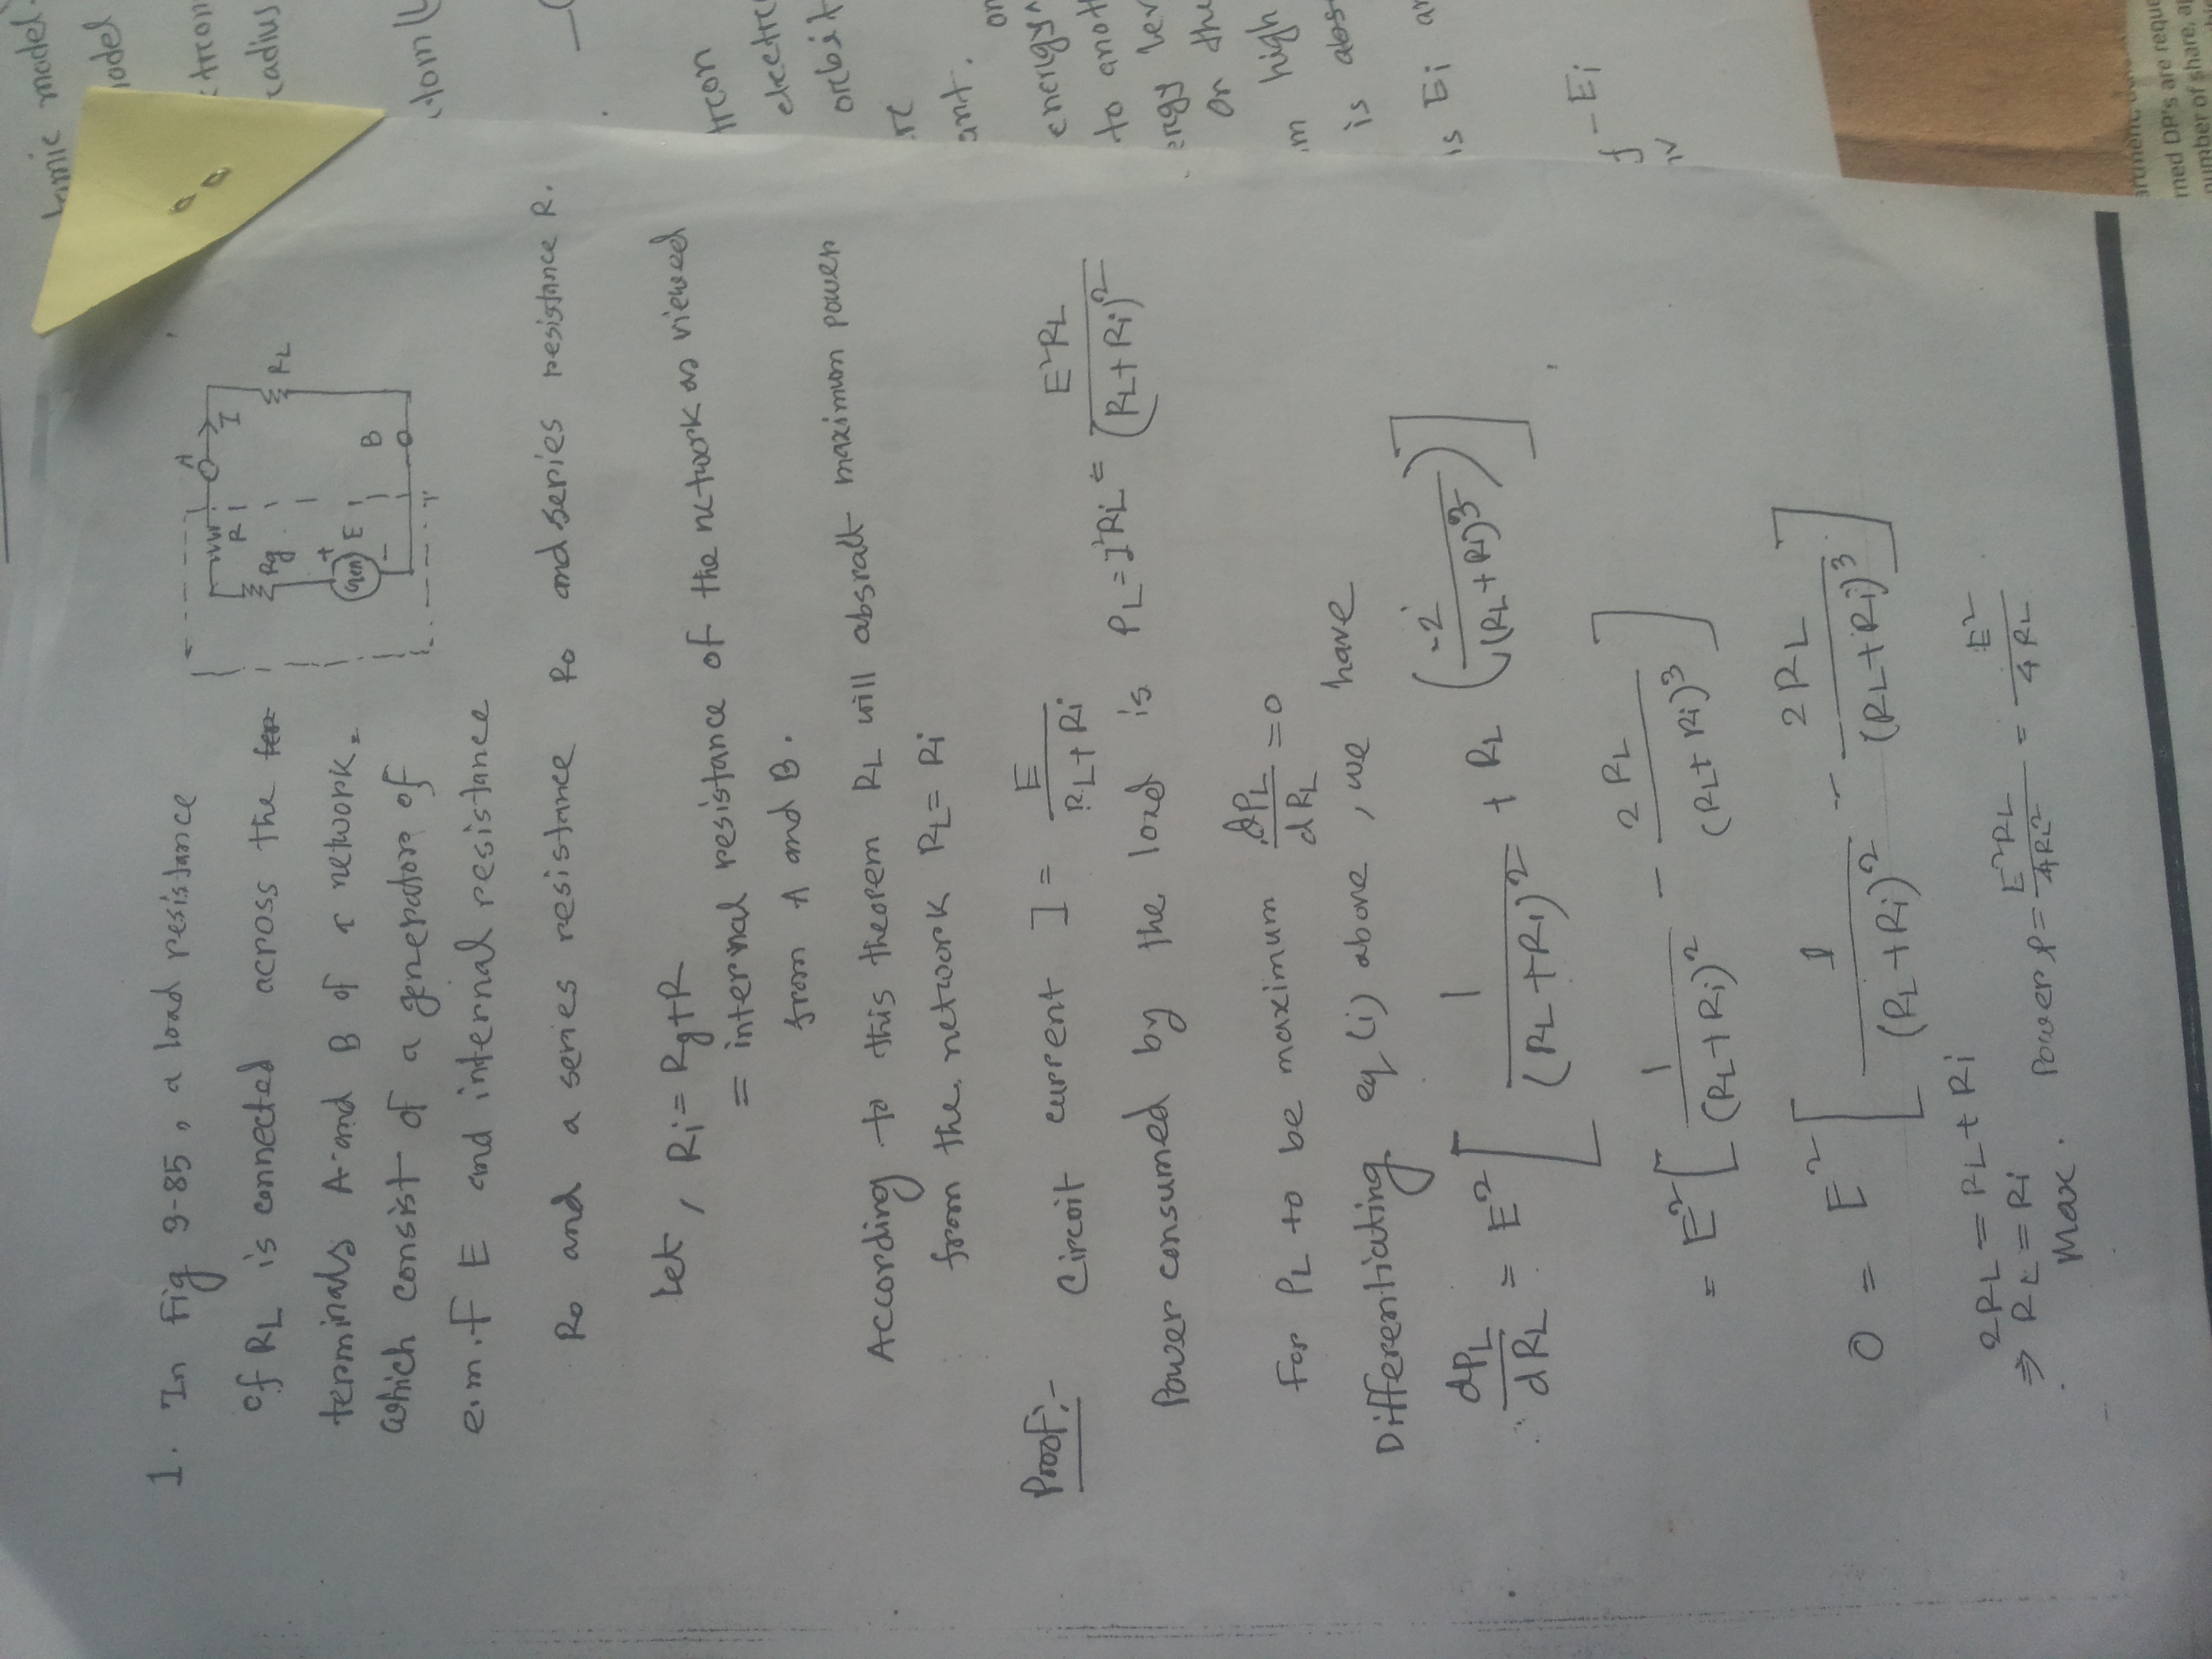 1. In Fig 9-85, a load resistance
of RL is connected across the ter
terminals A and B of a network.
which consist of a generator of
e.m.f E and internal resistance
Ro and a series resistance Ro and series resistance R.
A
I
R
Rg
RL
+
Gen E
-
B
Let, Ri = Rg+R
= internal resistance of the network as viewed
from A and B.
According to this theorem RL will absratt maximum power
from the network RL = Ri
Proof:- Circuit current I = E / (RL+Ri)
Power consumed by the load is PL = I²RL = E²RL / (RL+Ri)²
For PL to be maximum dPL/dRL = 0
Differentiating eq (i) above, we have
dPL/dRL = E² [ 1/(RL+Ri)² + RL ( -2/(RL+Ri)³ ) ]
= E² [ 1/(RL+Ri)² - 2RL/(RL+Ri)³ ]
0 = E² [ 1/(RL+Ri)² - 2RL/(RL+Ri)³ ]
2RL = RL+Ri
⇒ RL = Ri
Max. Power P = E²RL/4RL² = E²/4RL
tomic model.
model
ctron
radius
atom (L
tron
electro
orbit
re
ant.
on
energy
to anot
ergy lev
on the
m high
is abs
is Ei an
f - Ei
artment,
rned DP's are reque
number of share, a